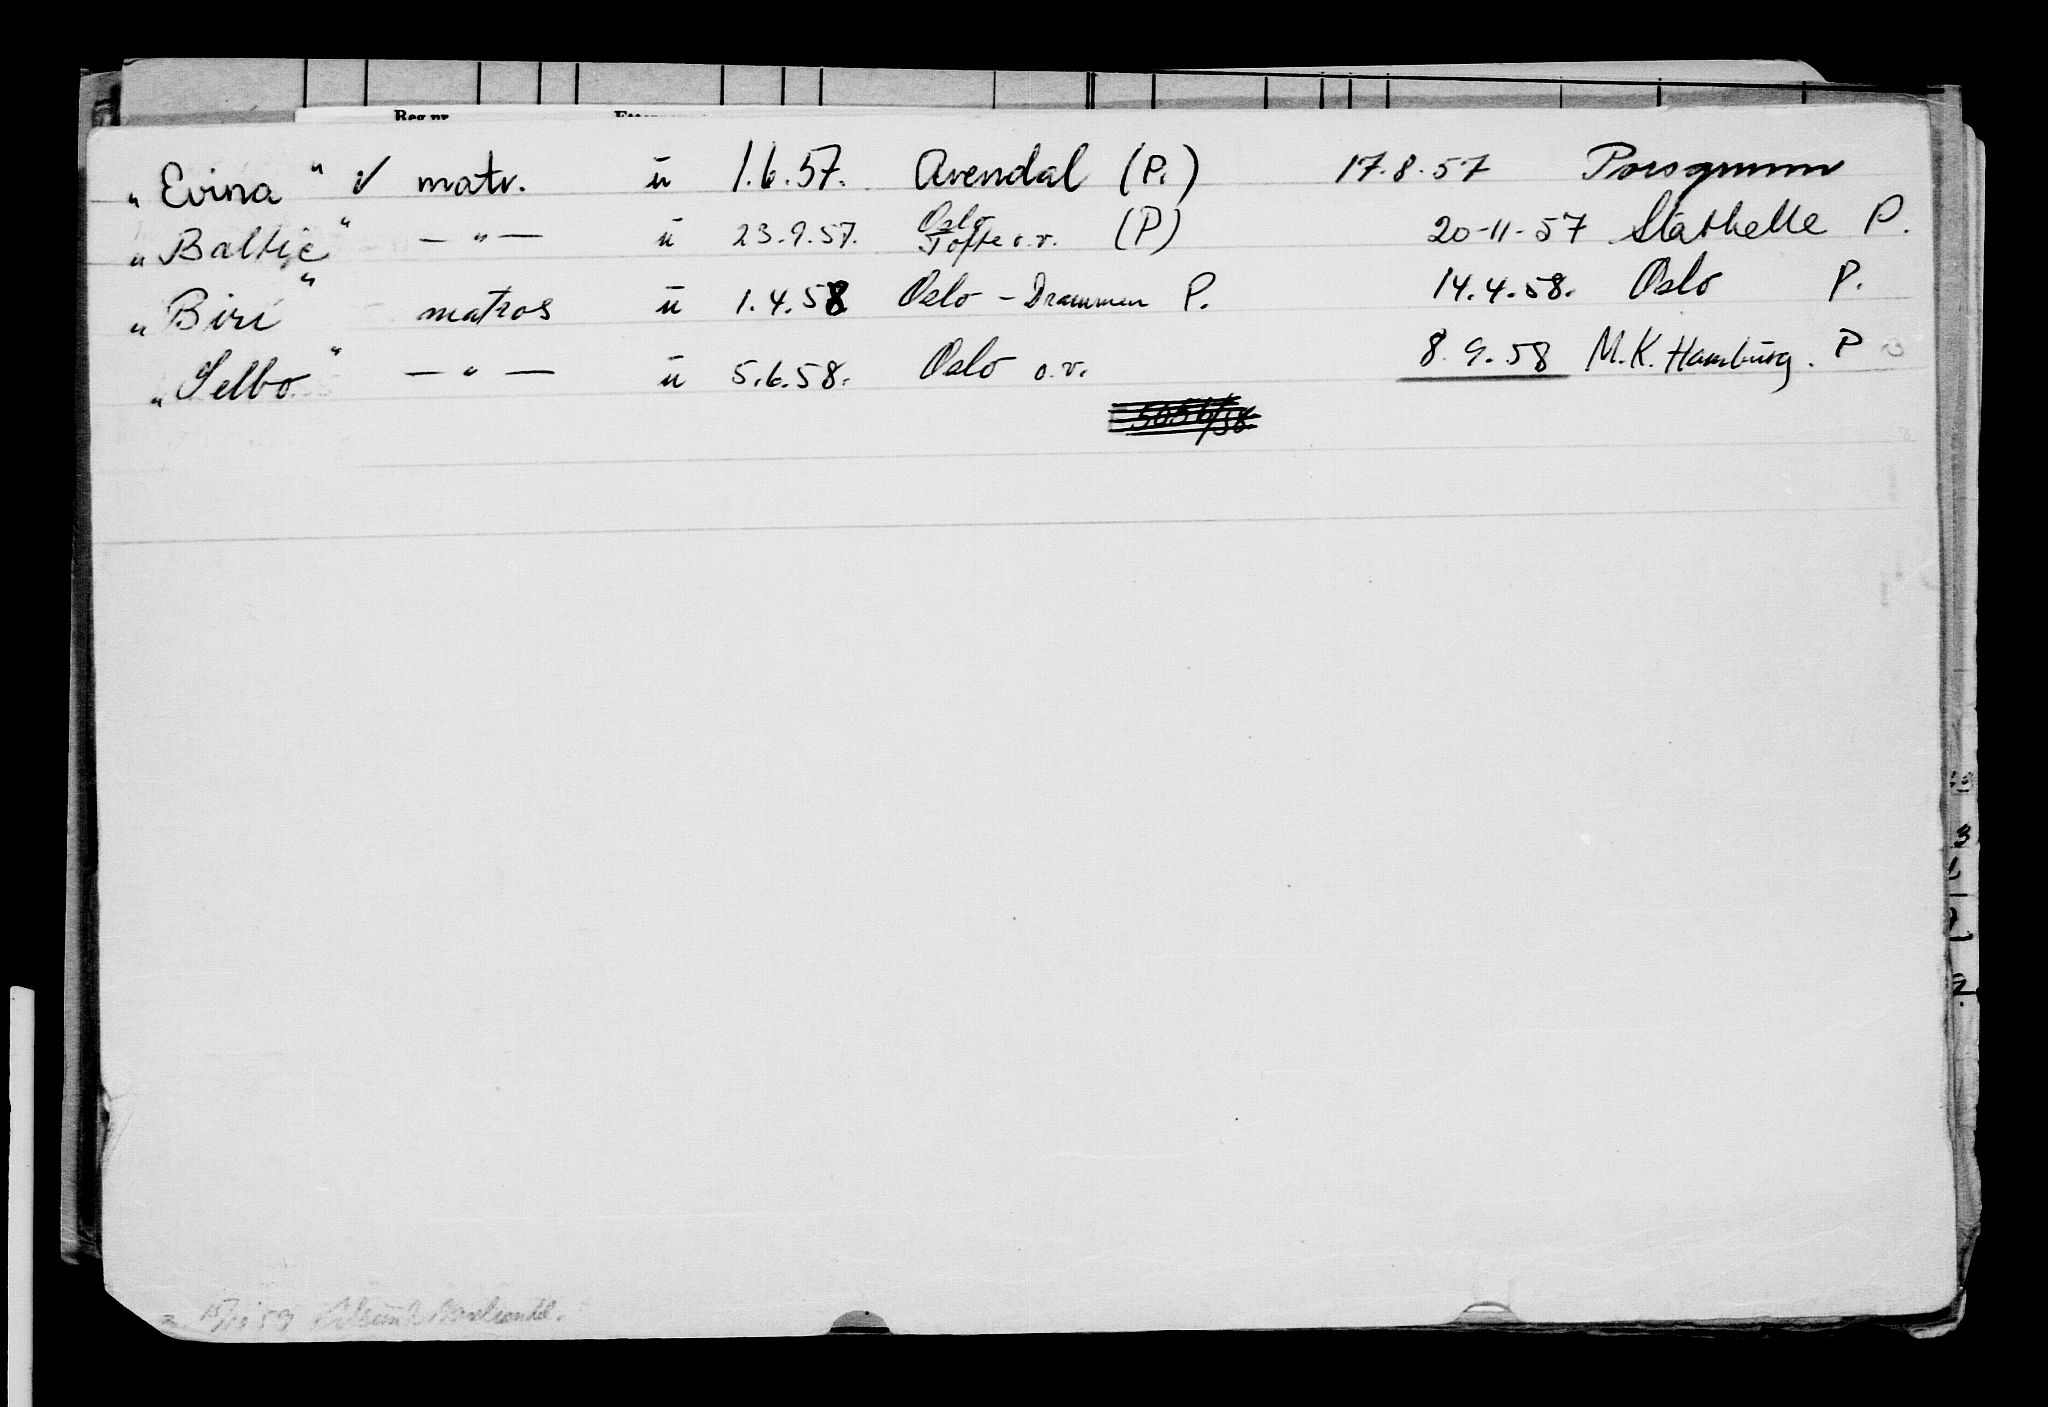 „Evina" ✓ matr. ü 1.6.57. Arendal (P.) 17.8.57 Porsgrunn
„Baltic" — " — ü 23.9.57. Oslo Tofte o.v. (P) 20-11-57 Stathelle P.
„Biri" matros ü 1.4.58 Oslo - Drammen P. 14.4.58. Oslo P.
„Selbo" — " — ü 5.6.58. Oslo o.v. 8.9.58 M.K. Hamburg. P